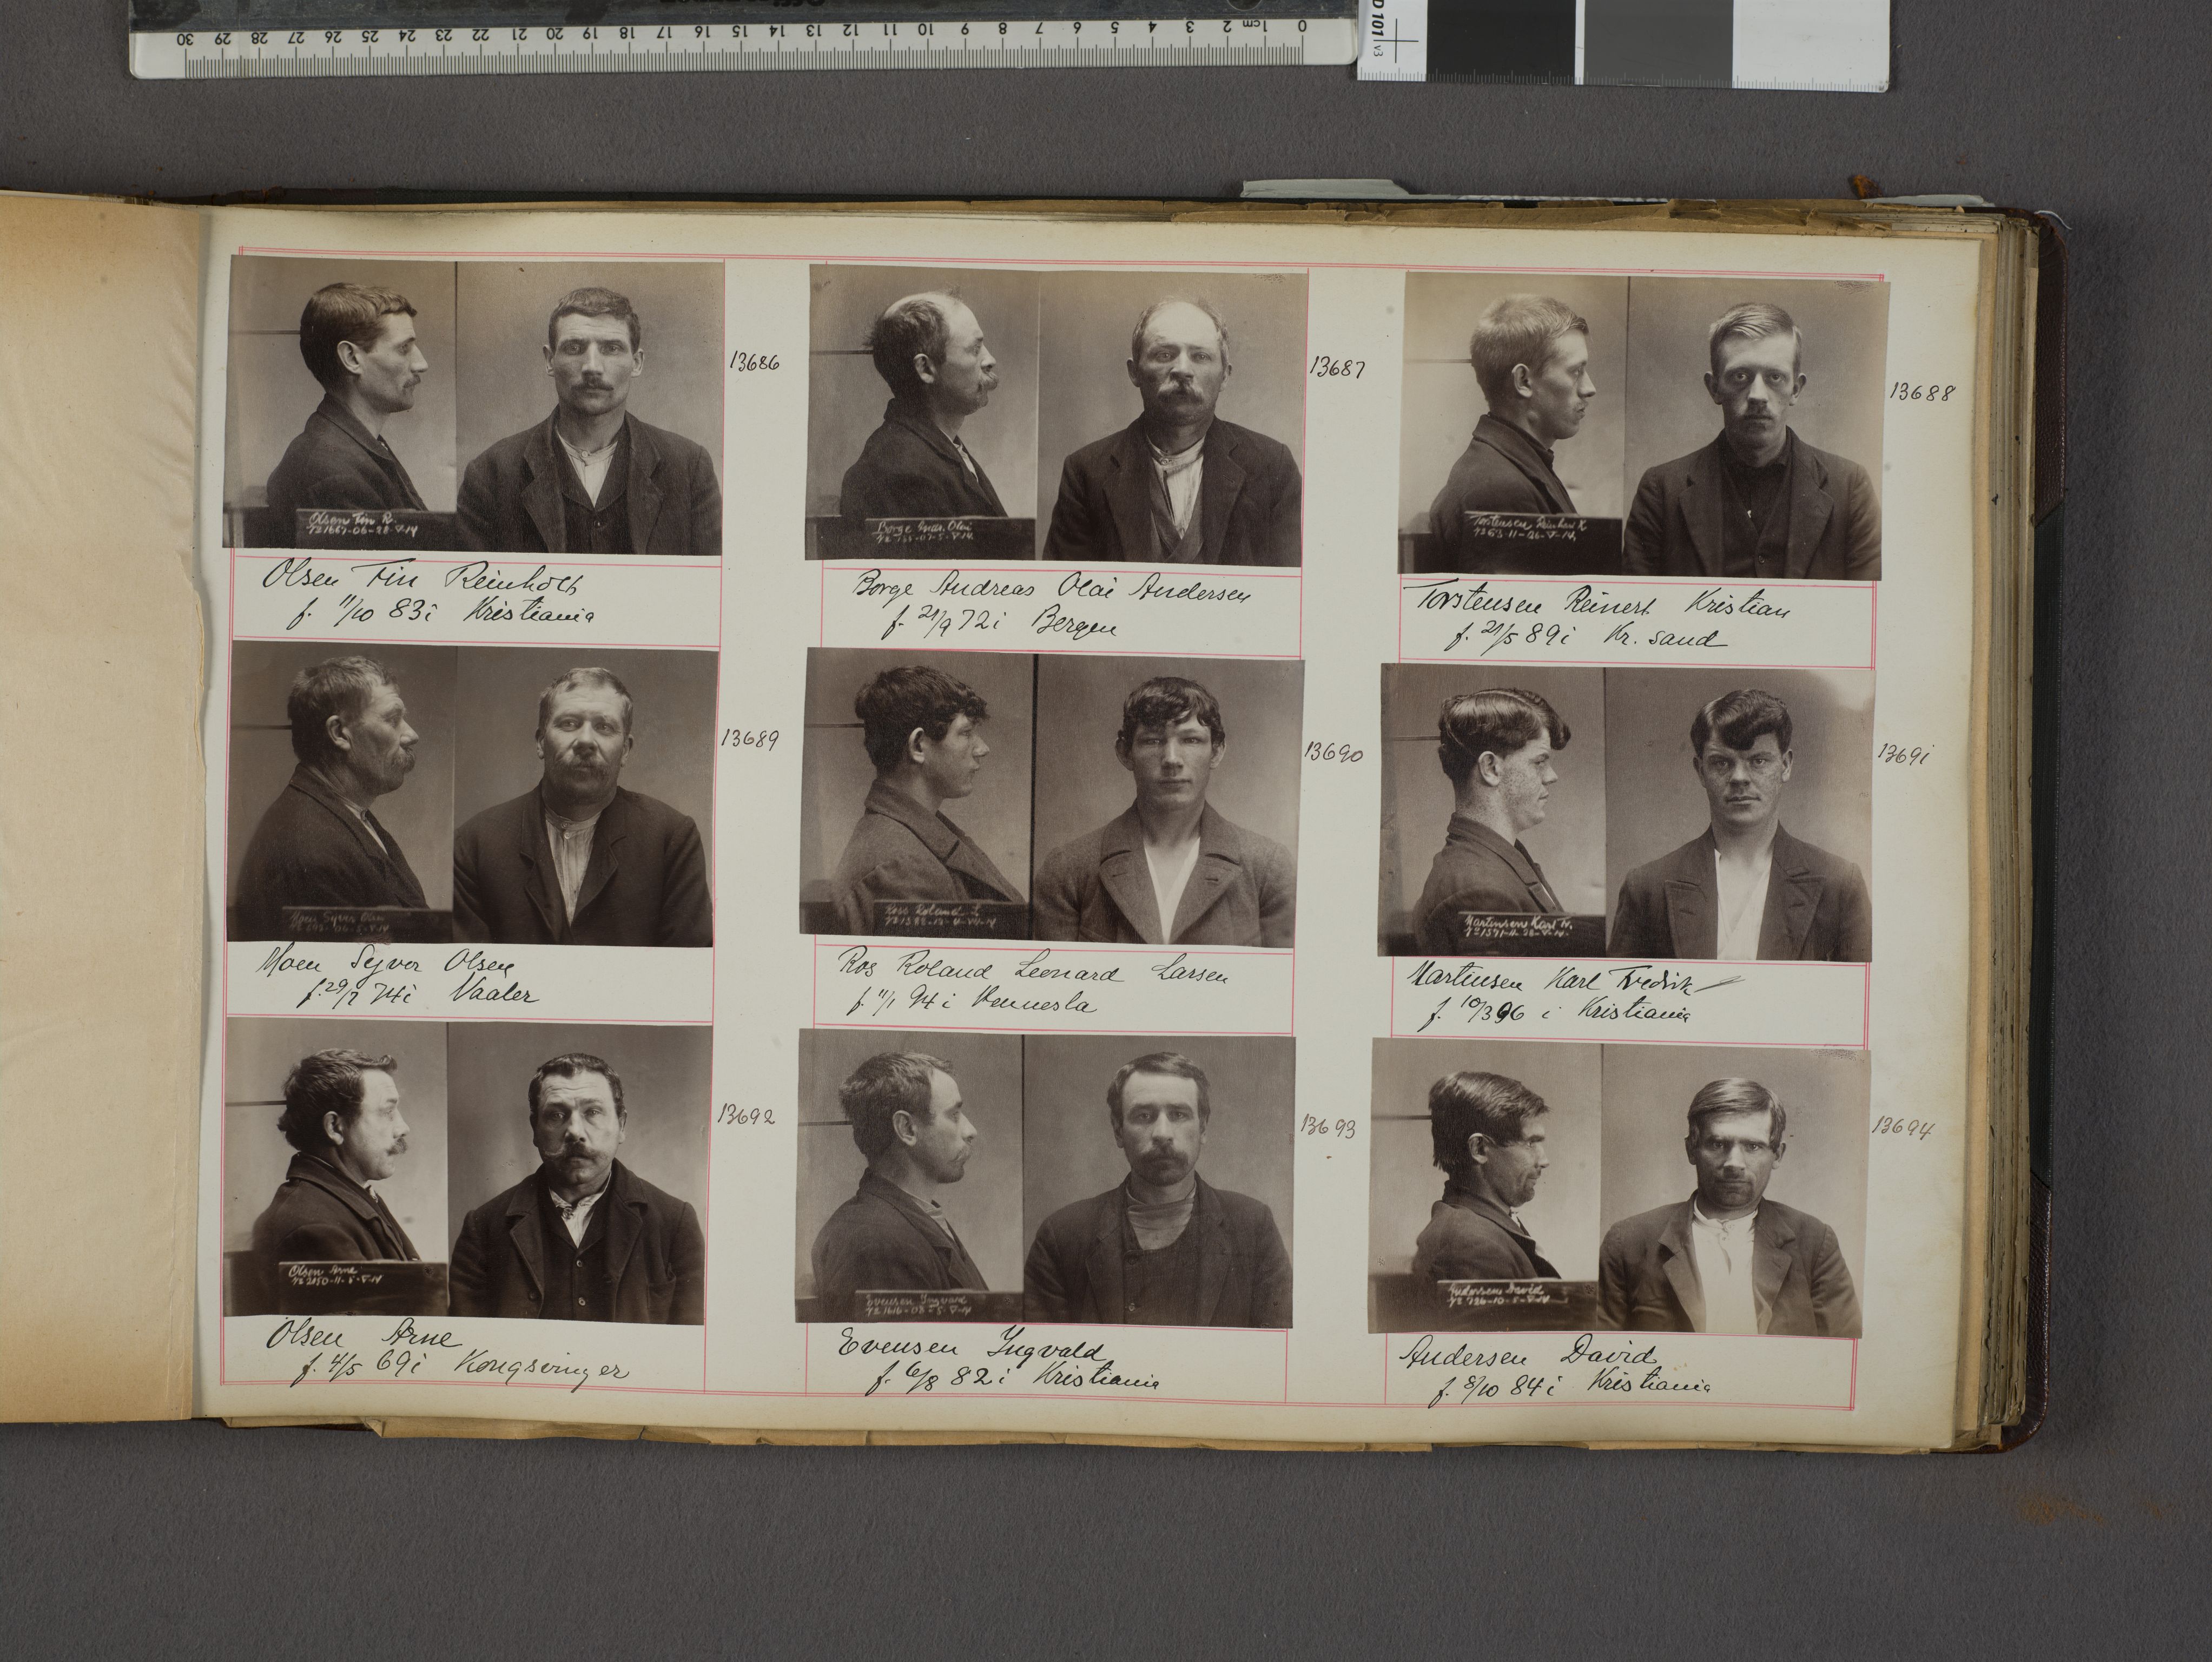 30 29 28 27 26 25 24 23 22 21 20 19 18 17 16 15 14 13 12 11 10 9 8 7 6 5 4 3 2 1cm 0
D 101 v3
Olsen Fin R.
№1667-06-28-V-14
13686
Olsen Fin Reinholt
f. 11/10 83 i Kristiania
Borge Andr. Olai
13687
Borge Andreas Olai Andersen
f. 21/9 72 i Bergen
Torstensen Reinhart K
№63-11-26-V-14
13688
Torstensen Reinert Kristian
f. 21/5 89 i Kr. sand
Moen Syver Olsen
13689
Moen Syver Olsen
f. 29/7 74 i Vaaler
Ross Roland L
13690
Ros Roland Leonard Larsen
f. 11/1 94 i Vennesla
Martinsen Karl Fr.
№1371-11-28-V-14
13691
Martinsen Karl Fredrik
f. 10/3 96 i Kristiania
Olsen Arne
№2150-11-5-V-14
13692
Olsen Arne
f. 4/5 69 i Kongsvinger
Evensen Ingvald
№1616-03-5-V-14
13693
Evensen Ingvald
f. 6/8 82 i Kristiania
Andersen David
№726-10-5-V-14
13694
Andersen David
f. 8/10 84 i Kristiania